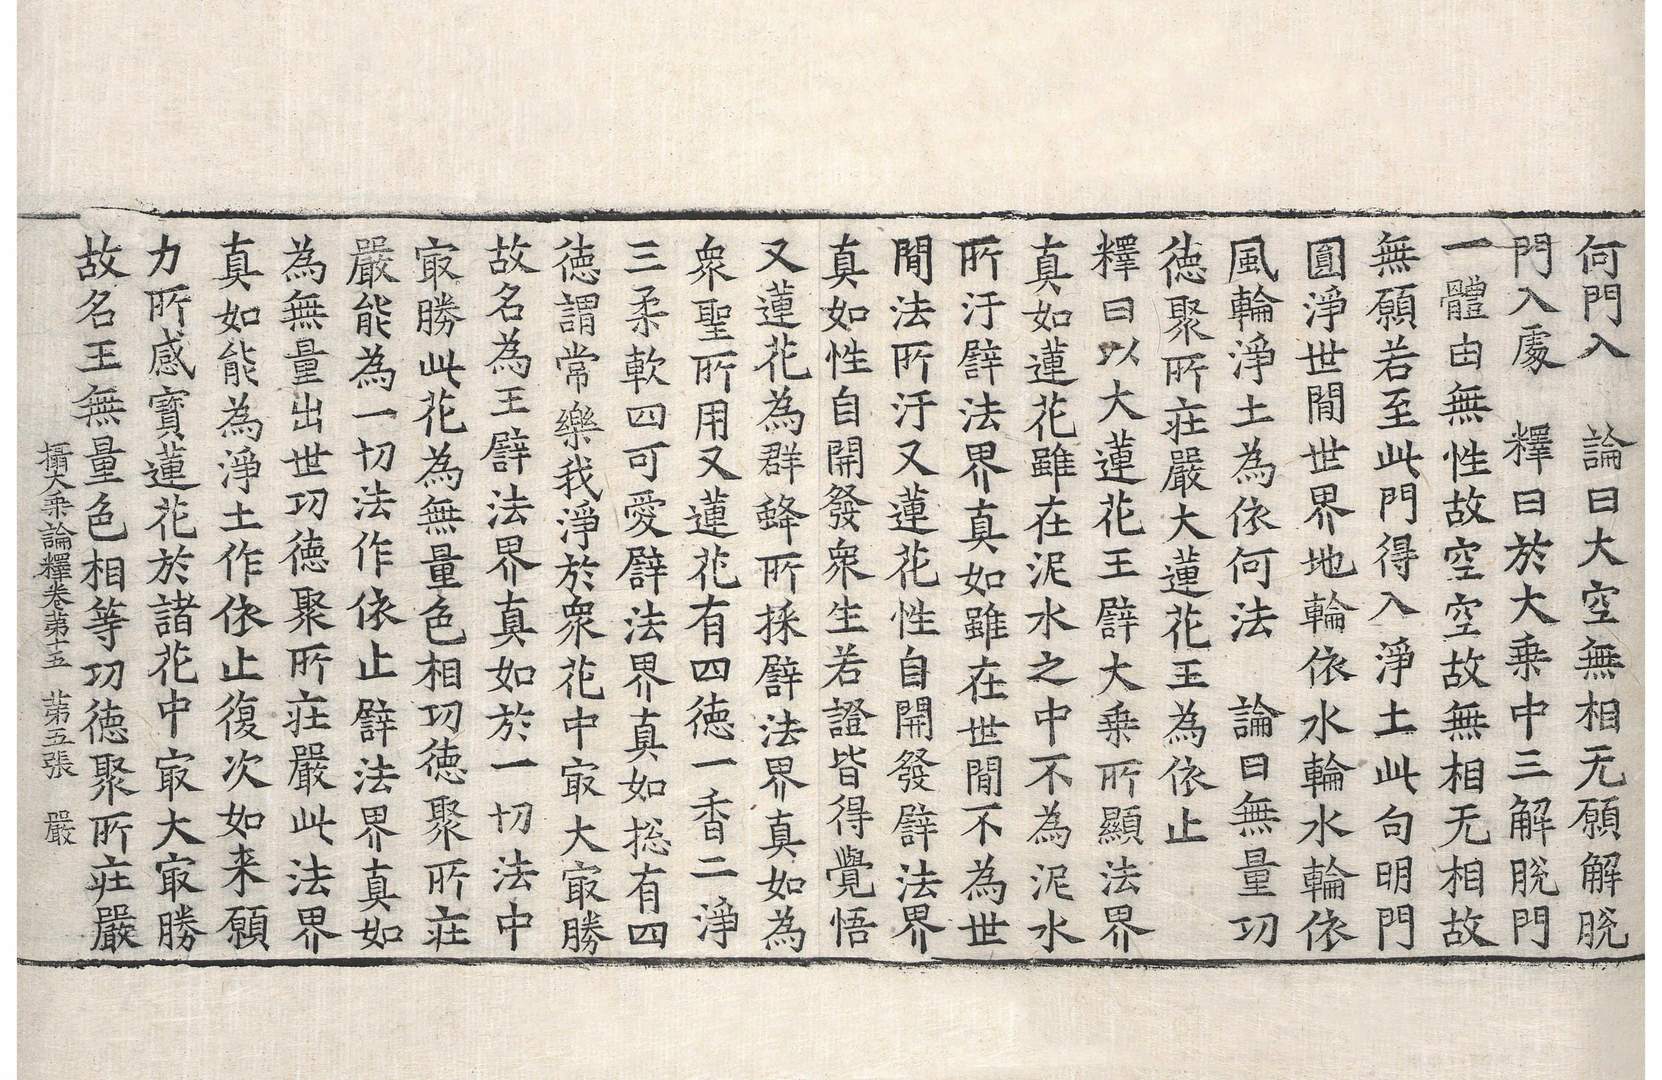 何門入　論曰大空無相无願解脫
門入處　釋曰於大乘中三解脫門
一體由無性故空空故無相无相故
無願若至此門得入淨土此句明門
圓淨世閒世界地輪依水輪水輪依
風輪淨土為依何法　論曰無量功
德聚所莊嚴大蓮花王為依止
釋曰以大蓮花王譬大乘所顯法界
真如蓮花雖在泥水之中不為泥水
所汙譬法界真如雖在世閒不為世
閒法所汙又蓮花性自開發譬法界
真如性自開發衆生若證皆得覺悟
又蓮花為群蜂所採譬法界真如為
衆聖所用又蓮花有四德一香二淨
三柔軟四可愛譬法界真如捴有四
德謂常樂我淨於衆花中㝡大㝡勝
故名為王譬法界真如於一切法中
㝡勝此花為無量色相功德聚所莊
嚴能為一切法作依止譬法界真如
為無量出世功德聚所莊嚴此法界
真如能為淨土作依止復次如来願
力所感寶蓮花於諸花中㝡大㝡勝
故名王無量色相等功德聚所莊嚴
攝大乘論釋卷第十五　第五張　嚴